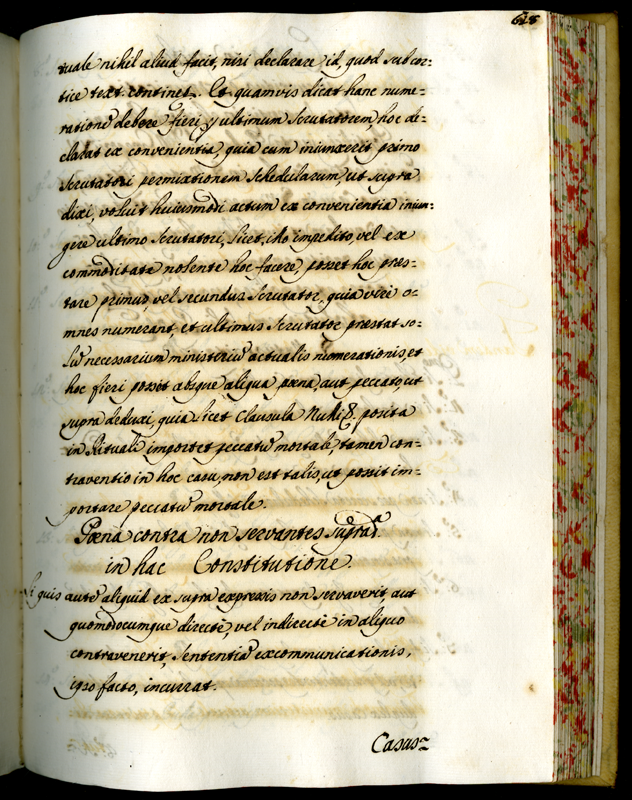 625
tuale nihil aliud facit, nisi declarare id, quod sub cor=
tice text. continet. Et quamvis dicat hanc nume=
ratione debere fieri p ultimum Scrutatorem, hoc de=
clarat ex convenientia, quia cum iniunxerit primo
Scrutatori permixtionem Schedularum, ut supra
dixi, voluit huiusmodi actum ex convenientia iniun=
gere ultimo Scrutatori, licet, illo impedito, vel ex
commoditate nolente hoc facere, posset hoc præs=
tare primus, vel secundus Scrutator, quia vere o=
mnes numerant, et ultimus Scrutator præstat so=
lu necessarium ministeriu actualis numerationis, et
hoc fieri posset absque aliqua pœna, aut peccato, ut
supra deduxi, quia licet Clausula posita
in Rituali importet peccatu mortale, tamen con=
traventio in hoc casu, non est talis, ut possit im=
portare peccatu mortale.
Pœna contra non servantes suprad.ᵃ
in hac Constitutione.
Si quis aute aliquid ex supra expressis non servaverit, aut
quomodocumque directè, vel indirectè in aliquo
contravenerit, sententia excommunicationis,
ipso facto, incurrat.
Casus